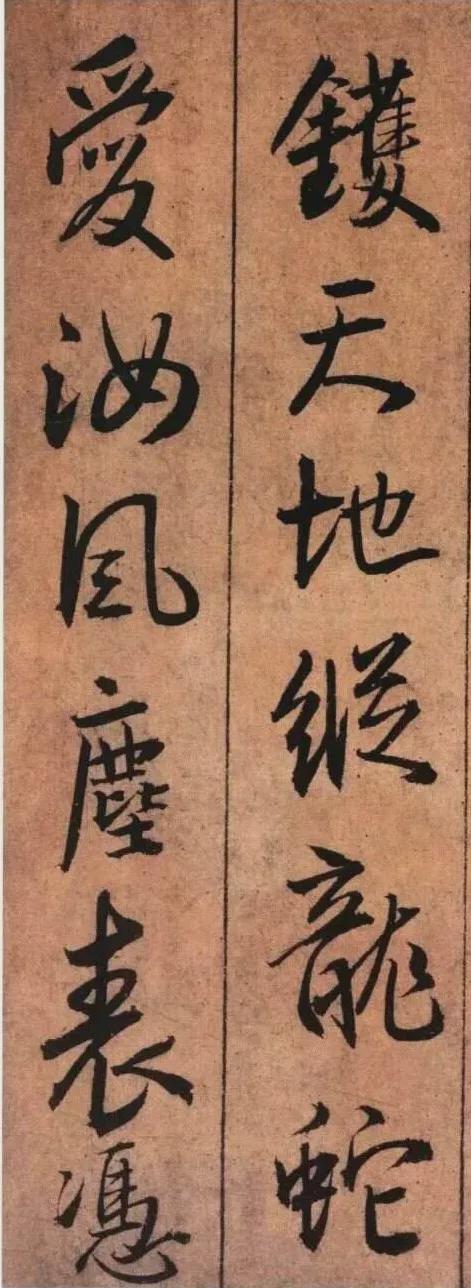 鑊天地縱龍蛇
愛汝風塵表憑